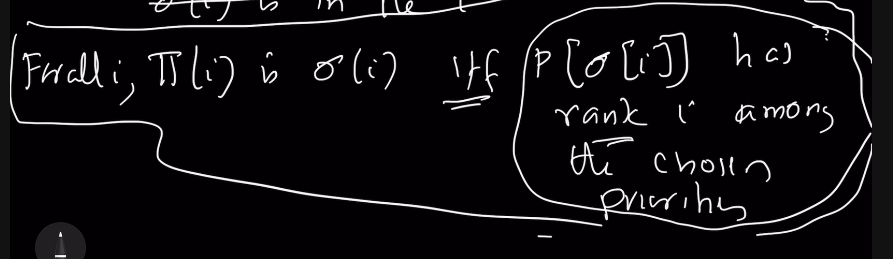 For all i, Π(i) is σ(i) iff P[σ[i]] has
rank i among
the chosen
priorities